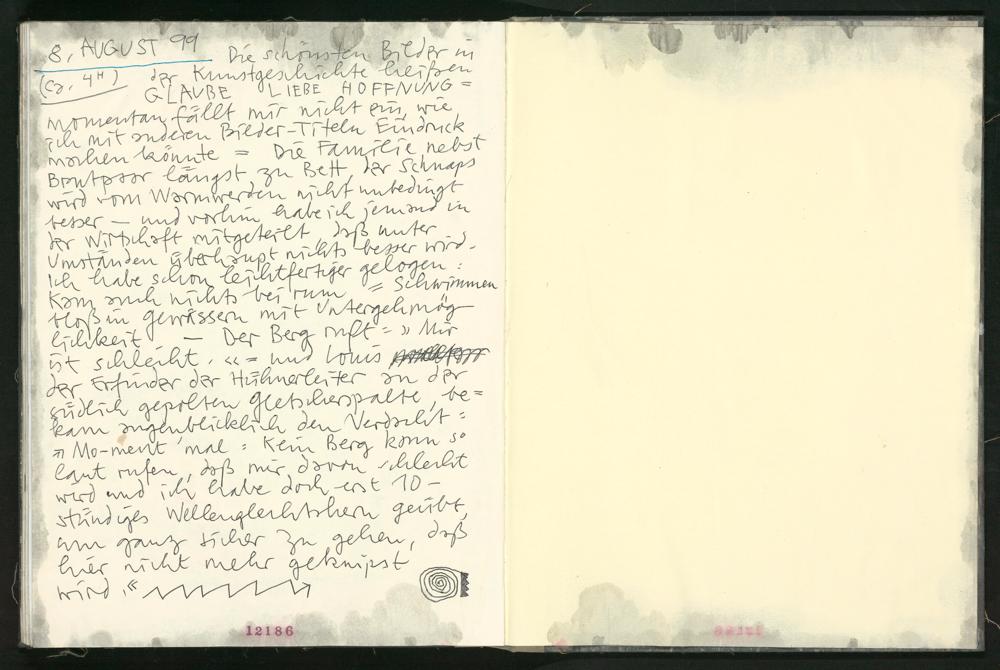 8. AUGUST 99 Die schönsten Bilder in
(ca. 4H) der Kunstgeschichte heißen
GLAUBE LIEBE HOFFNUNG =
momentan fällt mir nicht ein, wie
ich mit anderen Bilder-Titeln Eindruck
machen könnte = Die Familie nebst
Brautpaar längst zu Bett, der Schnaps
wird vom Warmwerden nicht unbedingt
besser — und vorhin habe ich jemand in
der Wirtschaft mitgeteilt, daß unter
Umständen überhaupt nichts besser wird.
Ich habe schon leichtfertiger gelogen =
Kam auch nichts bei rum = Schwimmen
bloß in Gewässern mit Untergehmög
lichkeit — Der Berg ruft = » Mir
ist schlecht. «« = und Louis
der Erfinder der Hühnerleiter an der
südlich gepolten Gletscherspalte, be=
kam augenblicklich den Verdacht =
» Mo-ment mal = Kein Berg kann so
laut rufen, daß mir davon schlecht
wird und ich habe doch erst 10-
stündiges geübt,
um ganz sicher zu gehen, daß
hier nicht mehr geknipst
wird. «
12186